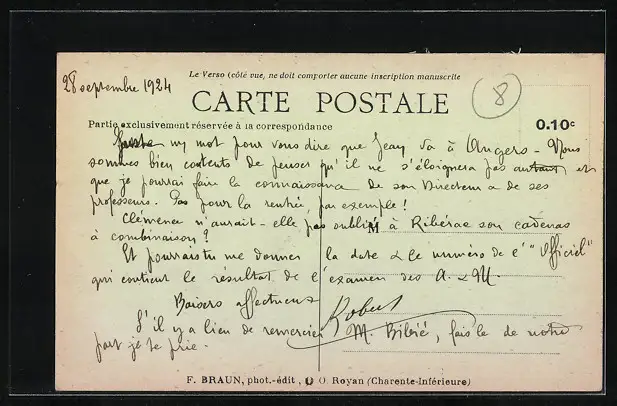 Le Verso (côté vue, ne doit comporter aucune inscription manuscrite
28 septembre 1924
CARTE POSTALE
8
Partie exclusivement réservée à la correspondance
0.10c
Juste un mot pour vous dire que Jean va à Angers - Nous
sommes bien contents de penser qu'il ne s'éloignera pas autant et
que je pourrai faire la connaissance de son Directeur & de ses
professeurs. Pas pour la rentrée par exemple!
Clémence n'aurait-elle pas oublié à Ribérac son cadenas
à combinaison?
M
Et pourrais tu me donner la date & le numéro de l'"Officiel"
qui contient le résultat de l'examen des A. & M.
Baisers affectueux
Robert
S'il y a lieu de remercier M. Bibié, fais le de notre
part je te prie.
F. BRAUN, phot.-édit, Royan (Charente-Inférieure)